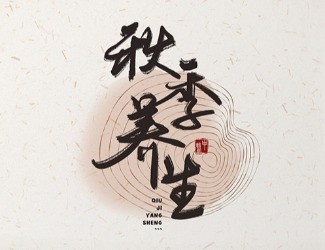 秋季
养生
QIU
JI
YANG
SHENG